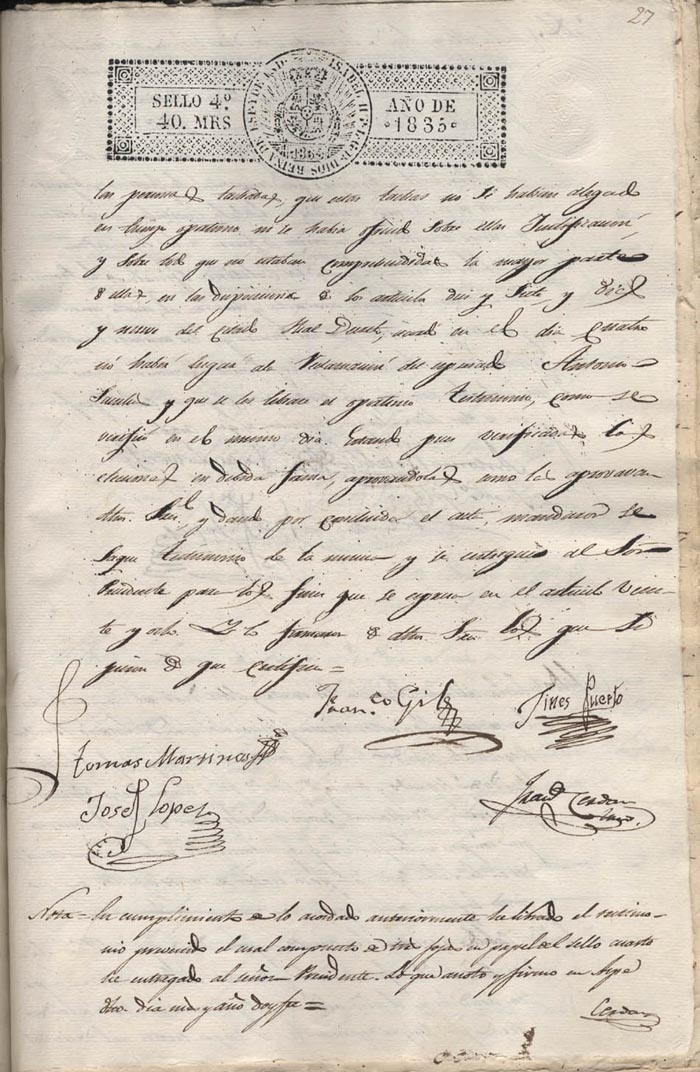 27
SELLO 4º
40. MRS
ISABEL II
DIOS REINA DE
AÑO DE
1835
que estas tachas no se habian alegado
en tiempo oportuno ni se habia ofrecido sobre ellas Justificacion,
y sobre todo que no estaban comprendidas la mayor parte
de ellas, en las disposiciones de los articulos diez y siete, y diez
y nueve del citado Real Decreto, en el dia cuatro
no haber lugar á la reclamacion del espresado Antonio
y que se les librase el oportuno testimonio, como se
verificó en el mismo dia. Estando pues verificadas las
elecciones en debida forma, aprovandolas como las aprovavan
dhos. Sres. y dando por concluido el acto, mandaron se
saque testimonio de la misma y se entregue al Sor.
Presidente para los fines que se espresa en el articulo vein-
te y ocho. Y lo firmaron de dhos. Sres. los que su-
pieron de que certifico =
Franco Gil
Gines Puerto
Tomas Martinez
Josef Lopez
Cerdan
Nota = En cumplimiento de lo acordado anteriormente he librado el testimo-
nio prevenido el cual compuesto de tres fojas en papel del sello cuarto
he entregado al señor Presidente. Lo que anoto y firmo en Aspe
dho. dia mes y año doy fe =
Cerdan